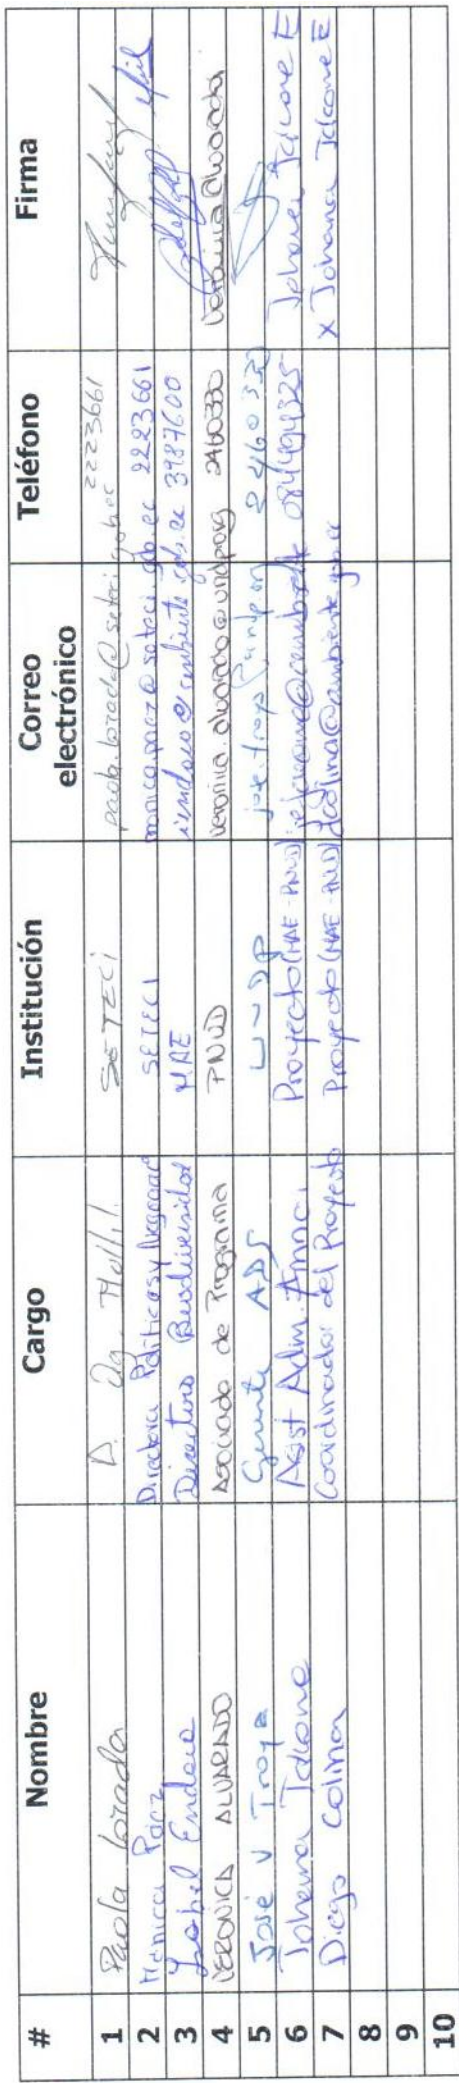 # Nombre Cargo Institución Correo electrónico Teléfono Firma
1 Paola Lozada D. SETECI paola.lozada@seteci.gob.ec 2223661
2 Monica Páez Directora Políticas y SETECI monica.paez@seteci.gob.ec 2223661
3 Isabel Endara Directora Biodiversidad MAE @ambiente.gob.ec 3987600
4 VERONICA ALVARADO Asociado de Programa PNUD veronica.alvarado@undp.org 2460330 Veronica Alvarado
5 José V Troya Gerente ADS UNDP 2460330
6 Johana Jácome Asist Adm. Proyecto (MAE-PNUD) Johana Jácome E
7 Diego Colina Coordinador del Proyecto Proyecto (MAE-PNUD) dcolina@ambiente.gob.ec x Johana Jácome E
8
9
10